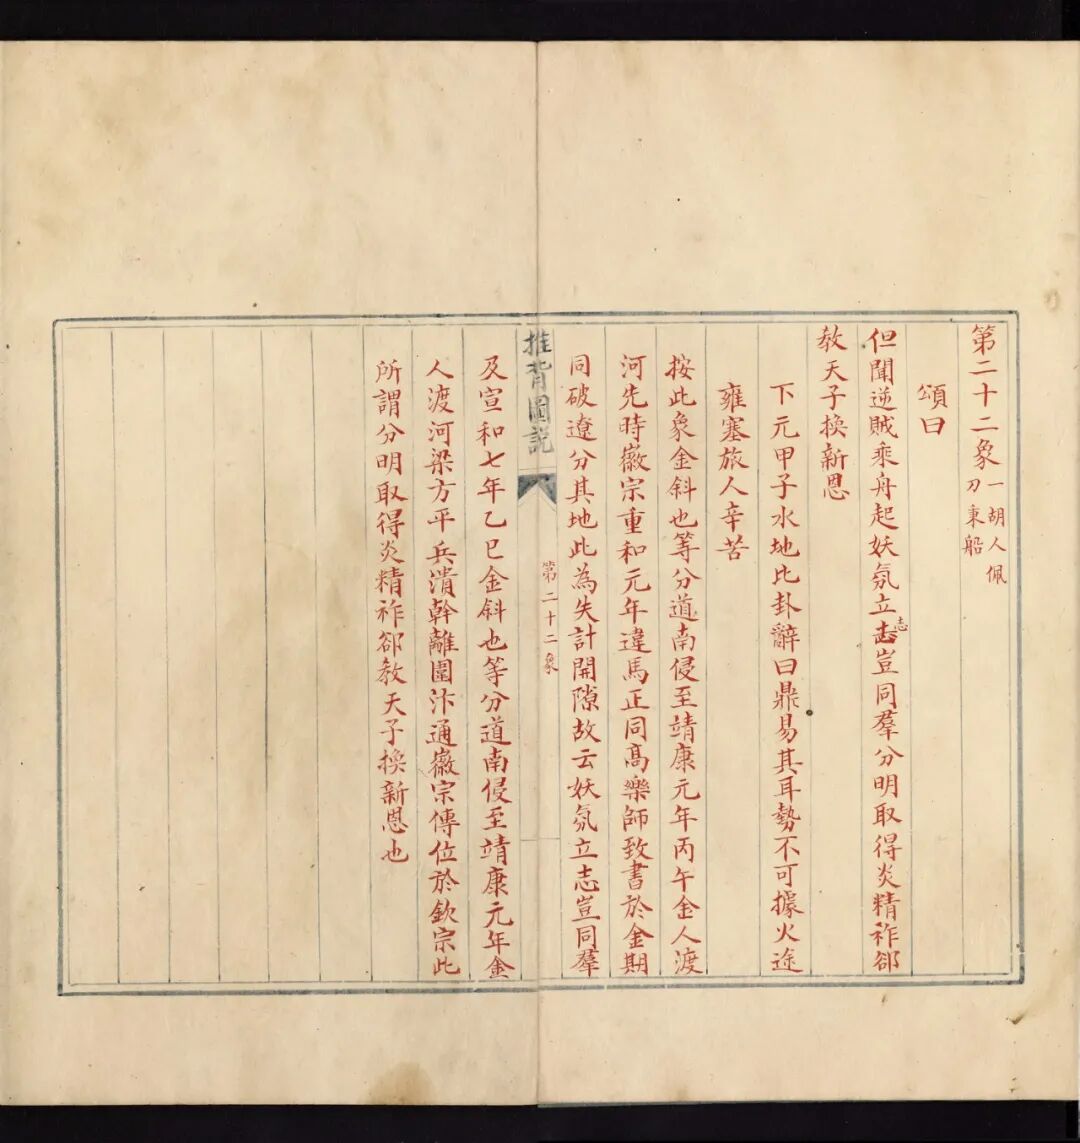 第二十二象一胡人佩
刀乘船
頌曰
但聞逆賊乘舟起妖氛立志豈同羣分明取得炎精祚郤
志
教天子換新恩
下元甲子水地比卦辭曰鼎易其耳勢不可據火途
雍塞旅人辛苦
按此象金斜也等分道南侵至靖康元年丙午金人渡
河先時徽宗重和元年違馬正同高樂師致書於金期
同破遼分其地此為失計開隙故云妖氛立志豈同羣
推背圖説
第二十二象
及宣和七年乙巳金斜也等分道南侵至靖康元年金
人渡河梁方平兵潰斡離圍汴通徽宗傳位於欽宗此
所謂分明取得炎精祚郤教天子換新恩也